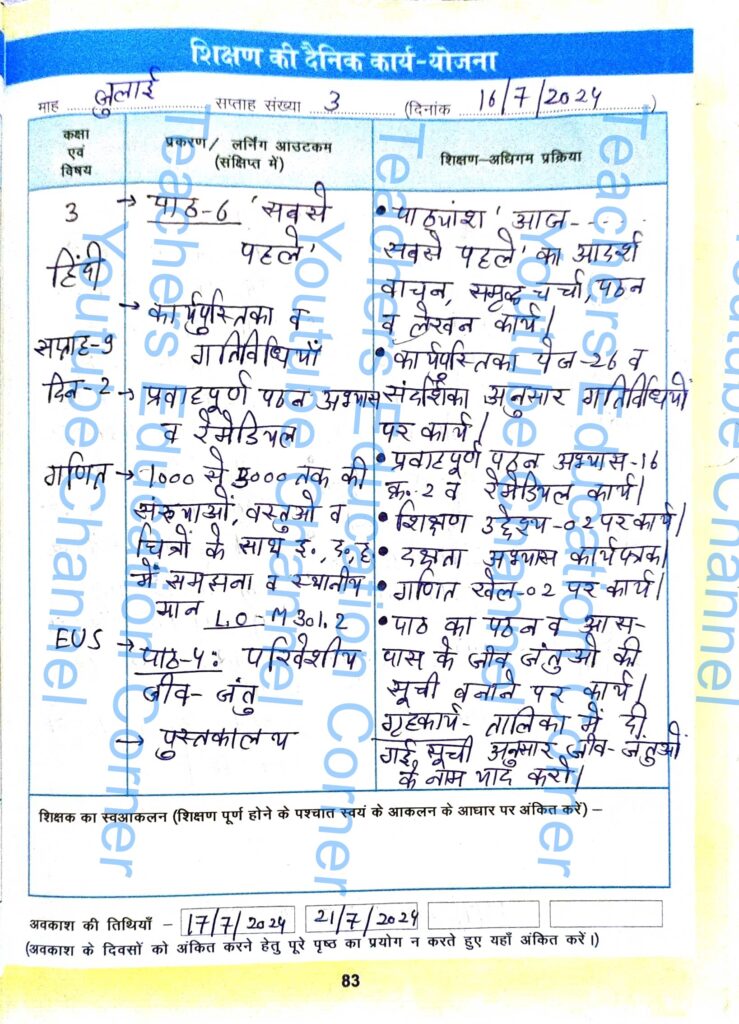 शिक्षण की दैनिक कार्य-योजना
माह जुलाई सप्ताह संख्या 3 (दिनांक 16/7/2024)
कक्षा
एवं
विषय
प्रकरण/ लर्निंग आउटकम
(संक्षिप्त में)
शिक्षण-अधिगम प्रक्रिया
3
हिंदी
सप्ताह-9
दिन-2
→ पाठ-6 'सबसे
पहले'
→ कार्यपुस्तिका व
गतिविधियाँ
→ प्रवाहपूर्ण पठन अभ्यास
व रेमेडियल
• पाठ्यांश 'आज----
सबसे पहले' का आदर्श
वाचन, समूह चर्चा, पठन
व लेखन कार्य।
• कार्यपुस्तिका पेज-26 व
संदर्शिका अनुसार गतिविधियों
पर कार्य।
• प्रवाहपूर्ण पठन अभ्यास-16
क्र.-2 व रेमेडियल कार्य।
गणित
→ 1000 से 3000 तक की
संख्याओं, वस्तुओ व
चित्रों के साथ इ०, द०, ह०
में समझना व स्थानीय
मान L.O-M301.2
• शिक्षण उद्देश्य-02 पर कार्य।
• दक्षता अभ्यास कार्यपत्रक।
• गणित खेल-02 पर कार्य।
EVS
→ पाठ-4: परिवेशीय
जीव-जंतु
→ पुस्तकालय
• पाठ का पठन व आस-
पास के जीव जंतुओ की
सूची बनाने पर कार्य।
गृहकार्य- तालिका में दी
गई सूची अनुसार जीव-जंतुओं
के नाम याद करो।
शिक्षक का स्वआकलन (शिक्षण पूर्ण होने के पश्चात स्वयं के आकलन के आधार पर अंकित करें) –
अवकाश की तिथियाँ - 17/7/2024 21/7/2024
(अवकाश के दिवसों को अंकित करने हेतु पूरे पृष्ठ का प्रयोग न करते हुए यहाँ अंकित करें।)
83
Teachers Education Corner
Youtube Channel
Teachers Education Corner
Youtube Channel
Teachers Education Corner
Youtube Channel